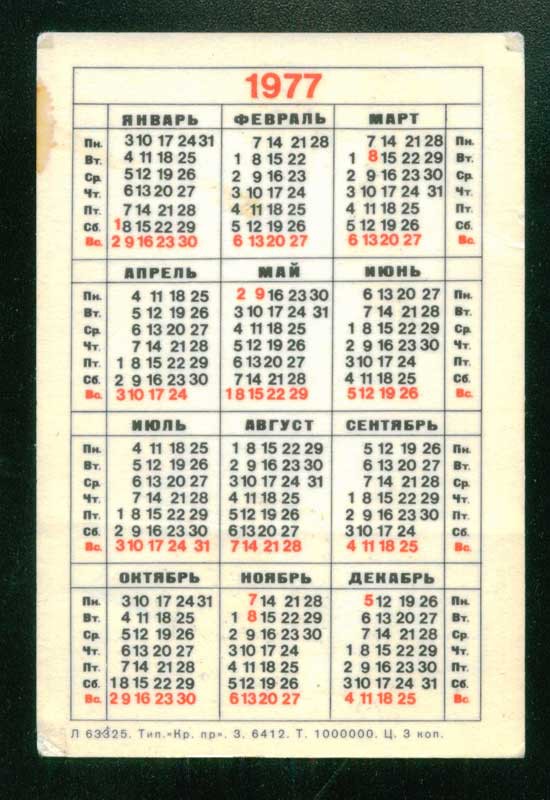 1977
ЯНВАРЬ ФЕВРАЛЬ МАРТ
Пн. 3 10 17 24 31 7 14 21 28 7 14 21 28 Пн.
Вт. 4 11 18 25 1 8 15 22 1 8 15 22 29 Вт.
Ср. 5 12 19 26 2 9 16 23 2 9 16 23 30 Ср.
Чт. 6 13 20 27 3 10 17 24 3 10 17 24 31 Чт.
Пт. 7 14 21 28 4 11 18 25 4 11 18 25 Пт.
Сб. 1 8 15 22 29 5 12 19 26 5 12 19 26 Сб.
Вс. 2 9 16 23 30 6 13 20 27 6 13 20 27 Вс.
АПРЕЛЬ МАЙ ИЮНЬ
Пн. 4 11 18 25 2 9 16 23 30 6 13 20 27 Пн.
Вт. 5 12 19 26 3 10 17 24 31 7 14 21 28 Вт.
Ср. 6 13 20 27 4 11 18 25 1 8 15 22 29 Ср.
Чт. 7 14 21 28 5 12 19 26 2 9 16 23 30 Чт.
Пт. 1 8 15 22 29 6 13 20 27 3 10 17 24 Пт.
Сб. 2 9 16 23 30 7 14 21 28 4 11 18 25 Сб.
Вс. 3 10 17 24 1 8 15 22 29 5 12 19 26 Вс.
ИЮЛЬ АВГУСТ СЕНТЯБРЬ
Пн. 4 11 18 25 1 8 15 22 29 5 12 19 26 Пн.
Вт. 5 12 19 26 2 9 16 23 30 6 13 20 27 Вт.
Ср. 6 13 20 27 3 10 17 24 31 7 14 21 28 Ср.
Чт. 7 14 21 28 4 11 18 25 1 8 15 22 29 Чт.
Пт. 1 8 15 22 29 5 12 19 26 2 9 16 23 30 Пт.
Сб. 2 9 16 23 30 6 13 20 27 3 10 17 24 Сб.
Вс. 3 10 17 24 31 7 14 21 28 4 11 18 25 Вс.
ОКТЯБРЬ НОЯБРЬ ДЕКАБРЬ
Пн. 3 10 17 24 31 7 14 21 28 5 12 19 26 Пн.
Вт. 4 11 18 25 1 8 15 22 29 6 13 20 27 Вт.
Ср. 5 12 19 26 2 9 16 23 30 7 14 21 28 Ср.
Чт. 6 13 20 27 3 10 17 24 1 8 15 22 29 Чт.
Пт. 7 14 21 28 4 11 18 25 2 9 16 23 30 Пт.
Сб. 1 8 15 22 29 5 12 19 26 3 10 17 24 31 Сб.
Вс. 2 9 16 23 30 6 13 20 27 4 11 18 25 Вс.
Л 63325. Тип.«Кр. пр». З. 6412. Т. 1000000. Ц. 3 коп.